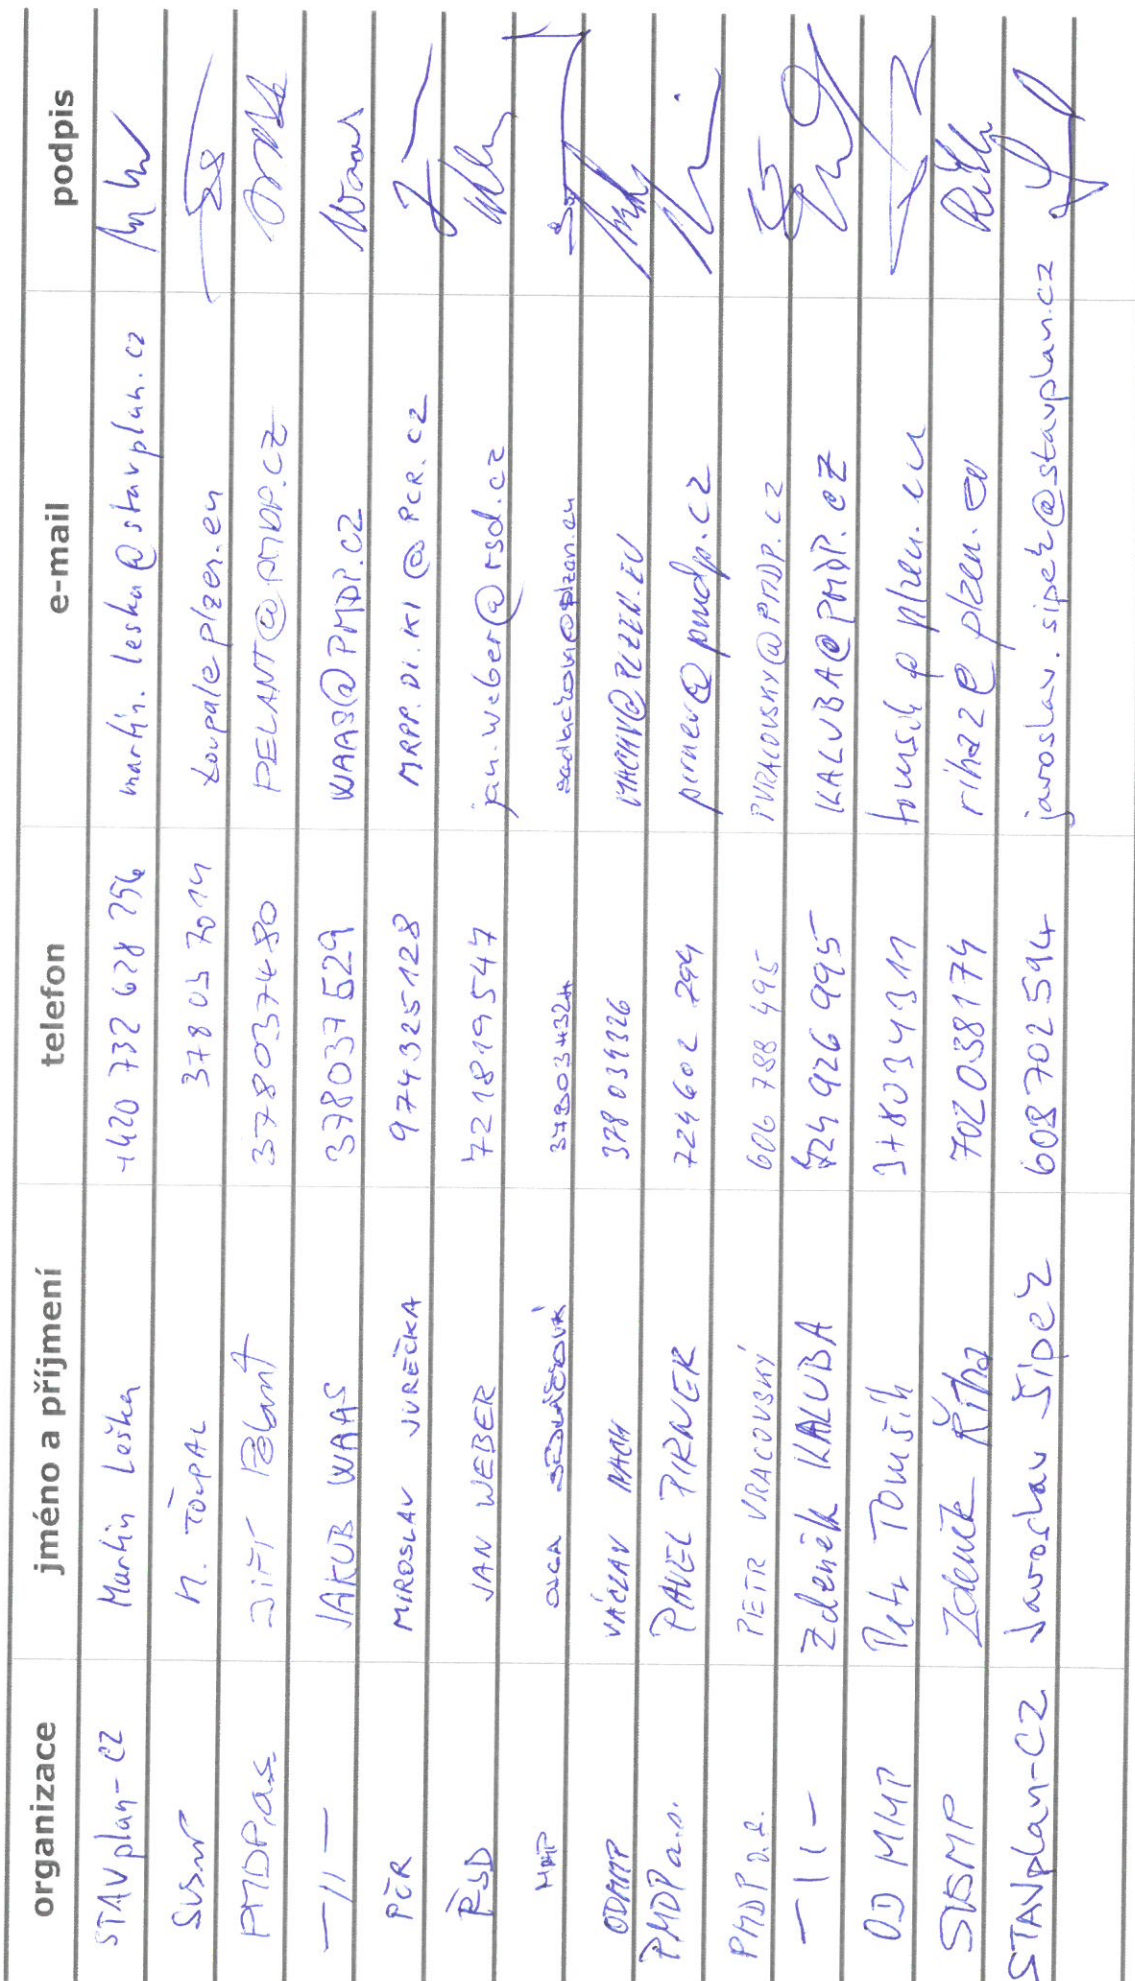 organizace jméno a příjmení telefon e-mail podpis
STAVplan-CZ Martin Leška +420 732 628 756 martin.leska@stavplan.cz
SVSMP M. TOUPAL 378 03 7014 toupal@plzen.eu
PMDP, a.s. JIŘÍ Pelant 378037480 PELANT@PMDP.CZ
-11- JAKUB WAAS 378037529 WAAS@PMDP.CZ
PČR MIROSLAV JUREČKA 974325128 MRPP.DI.KI@PCR.CZ
ŘSD JAN WEBER 721819547 jan.weber@rsd.cz
MMP OLGA SEDLÁČKOVÁ 378034324 sedlackova@plzen.eu
ODMMP VÁCLAV MACH 378034326 MACHV@PLZEN.EU
PMDP a.s. PAVEL PIRNER 724602 294 pirner@pmdp.cz
PMDP a.s. PETR VRACOVSKÝ 606 788 495 PVRACOVSKY@PMDP.CZ
-11- Zdeněk KALUBA 724 926 995 KALUBA@PMDP.CZ
OD MMP Petr Tomšík 378034311 tomsik@plzen.eu
SVSMP Zdeněk Říha 702038174 rihaz@plzen.eu
STAVplan-CZ Jaroslav Šípek 608702594 jaroslav.sipek@stavplan.cz